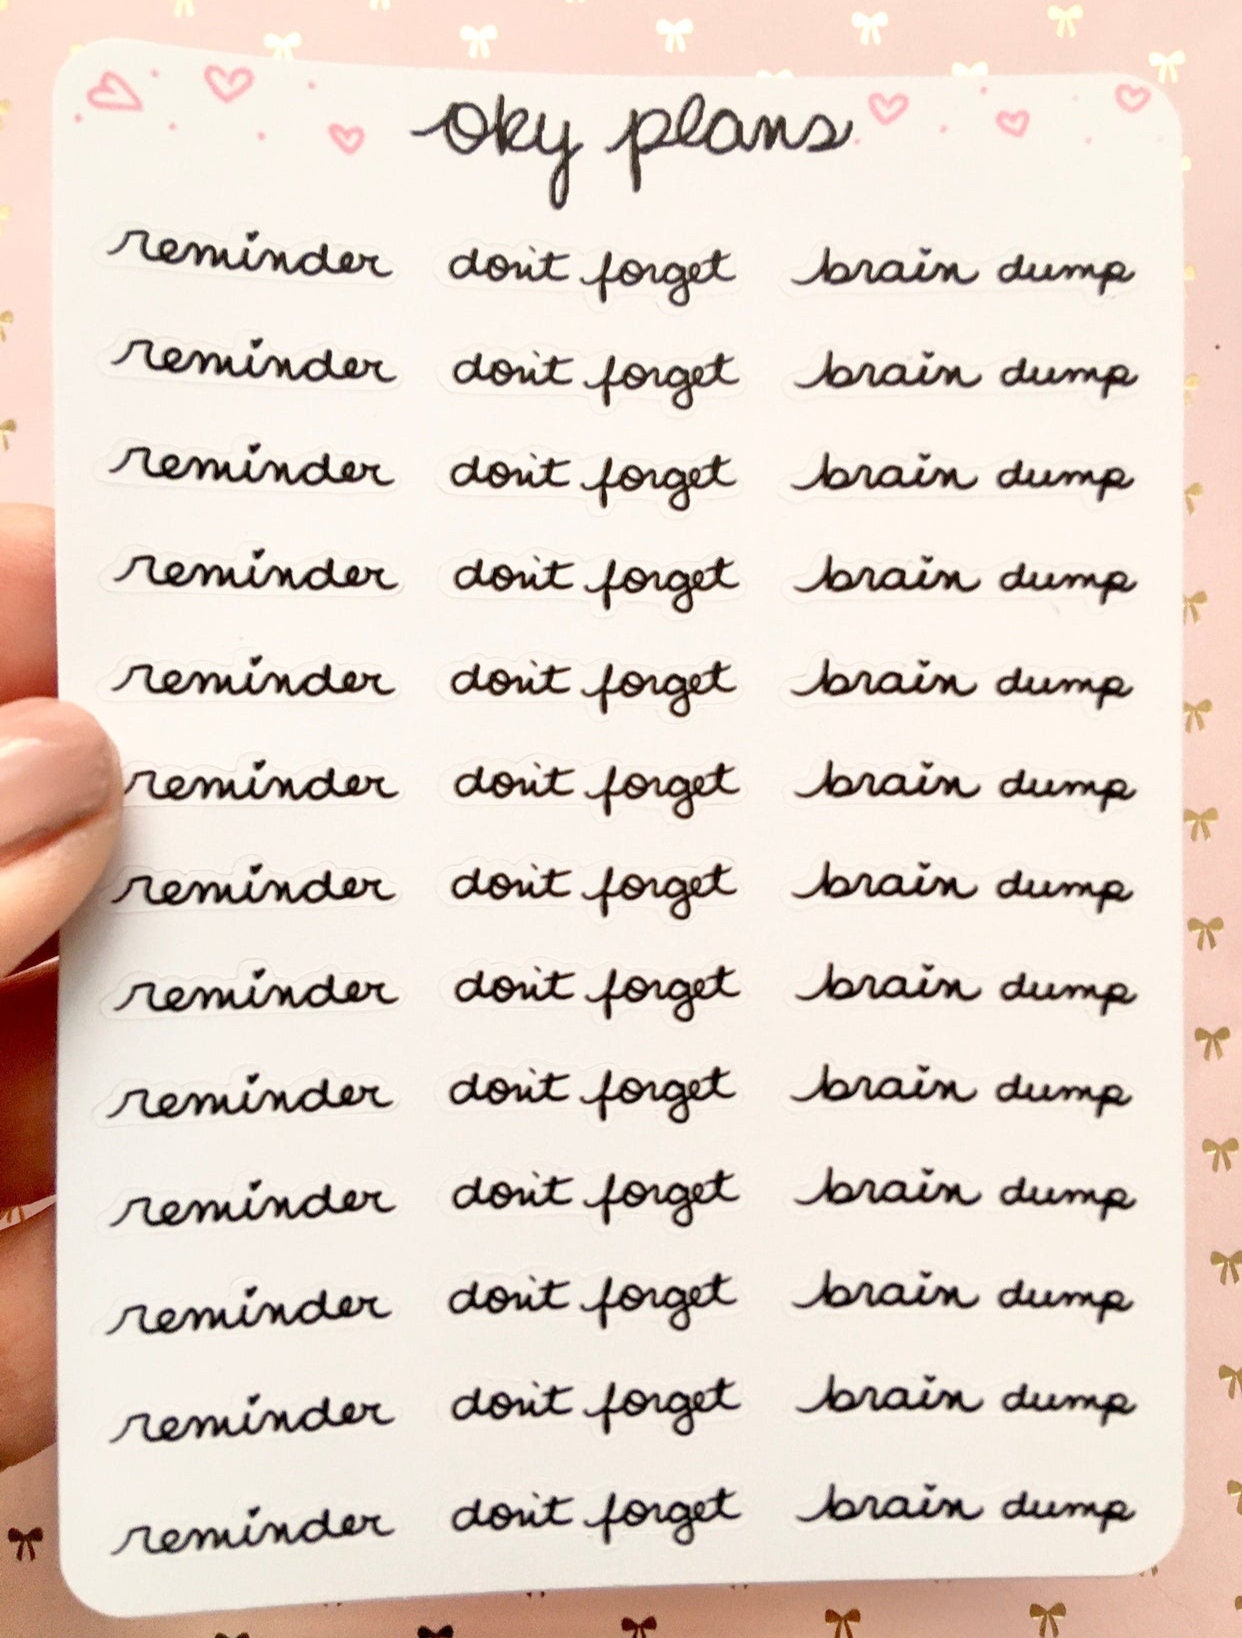 oky plans
reminder don't forget brain dump
reminder don't forget brain dump
reminder don't forget brain dump
reminder don't forget brain dump
reminder don't forget brain dump
reminder don't forget brain dump
reminder don't forget brain dump
reminder don't forget brain dump
reminder don't forget brain dump
reminder don't forget brain dump
reminder don't forget brain dump
reminder don't forget brain dump
reminder don't forget brain dump